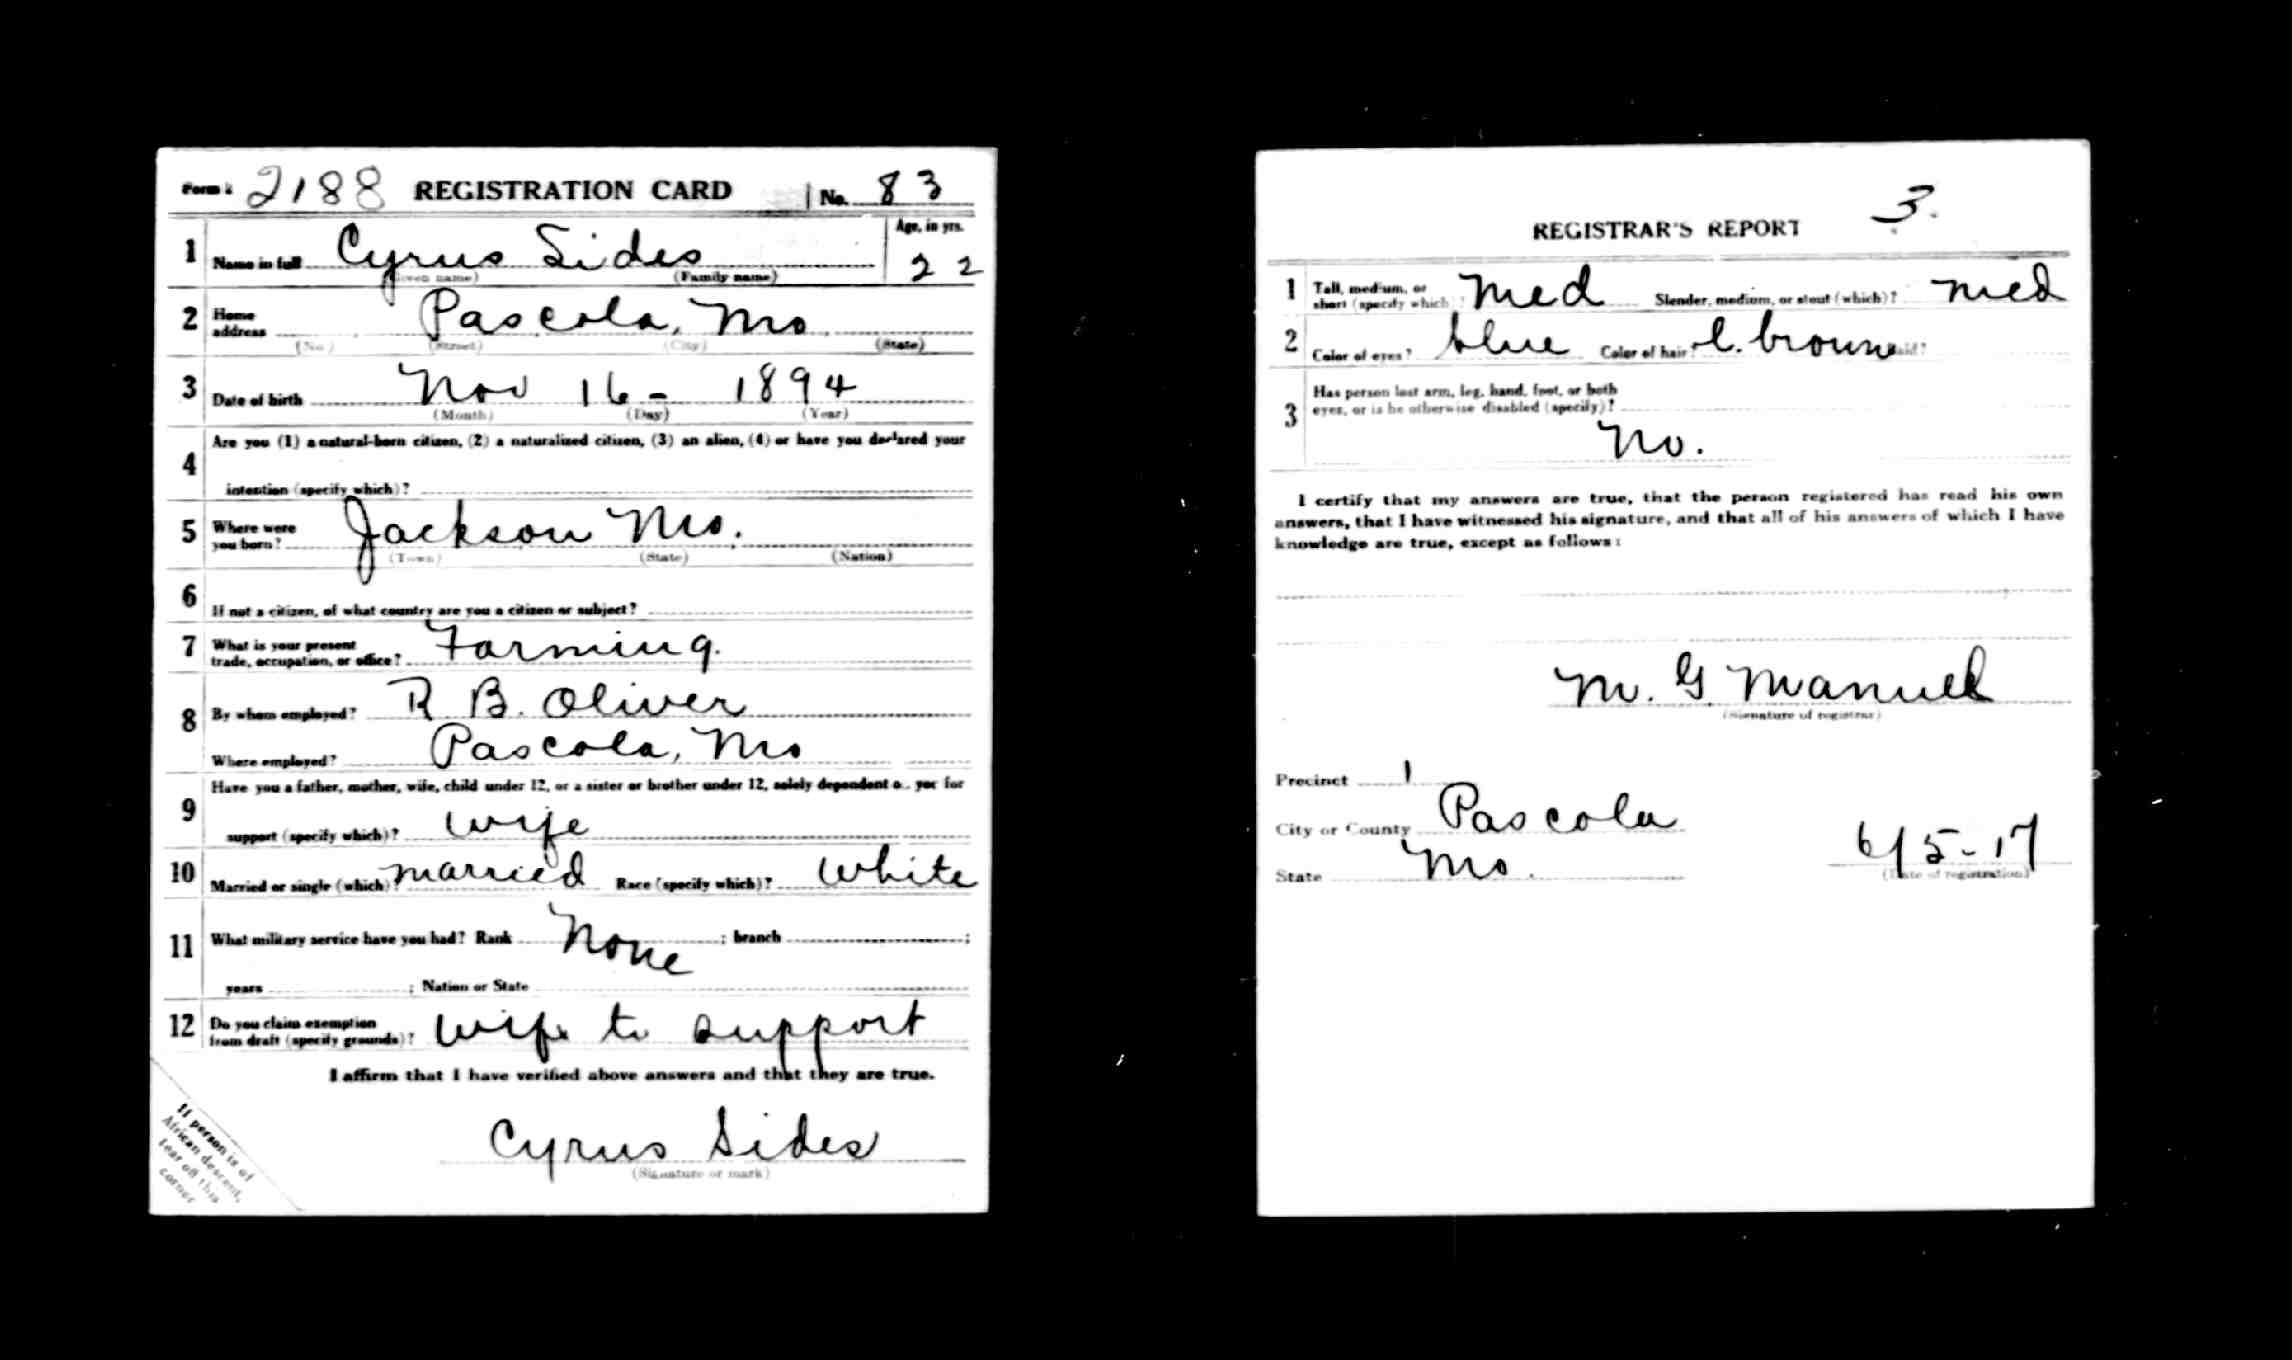 Form 1 2188 REGISTRATION CARD No. 83
1 Name in full Cyrus Sides Age, in yrs.
(Given name) (Family name) 22
2 Home address Pascola, Mo
(No.) (Street) (City) (State)
3 Date of birth Nov 16 - 1894
(Month) (Day) (Year)
4 Are you (1) a natural-born citizen, (2) a naturalized citizen, (3) an alien, (4) or have you declared your
intention (specify which)?
5 Where were you born? Jackson Mo.
(Town) (State) (Nation)
6 If not a citizen, of what country are you a citizen or subject?
7 What is your present trade, occupation, or office? Farming.
8 By whom employed? R B. Oliver
Where employed? Pascola, Mo
9 Have you a father, mother, wife, child under 12, or a sister or brother under 12, solely dependent on you for
support (specify which)? Wife
10 Married or single (which)? married Race (specify which)? White
11 What military service have you had? Rank None ; branch ;
years ; Nation or State
12 Do you claim exemption from draft (specify grounds)? Wife to support
I affirm that I have verified above answers and that they are true.
Cyrus Sides
(Signature or mark)
If person is of
African descent,
tear off this
corner
3.
REGISTRAR'S REPORT
1 Tall, medium, or short (specify which)? Med Slender, medium, or stout (which)? Med
2 Color of eyes? blue Color of hair? l. brown Bald?
3 Has person lost arm, leg, hand, foot, or both
eyes, or is he otherwise disabled (specify)?
No.
I certify that my answers are true, that the person registered has read his own
answers, that I have witnessed his signature, and that all of his answers of which I have
knowledge are true, except as follows:
M. G Manuel
(Signature of registrar)
Precinct 1
City or County Pascola
State Mo. 6/5-17
(Date of registration)